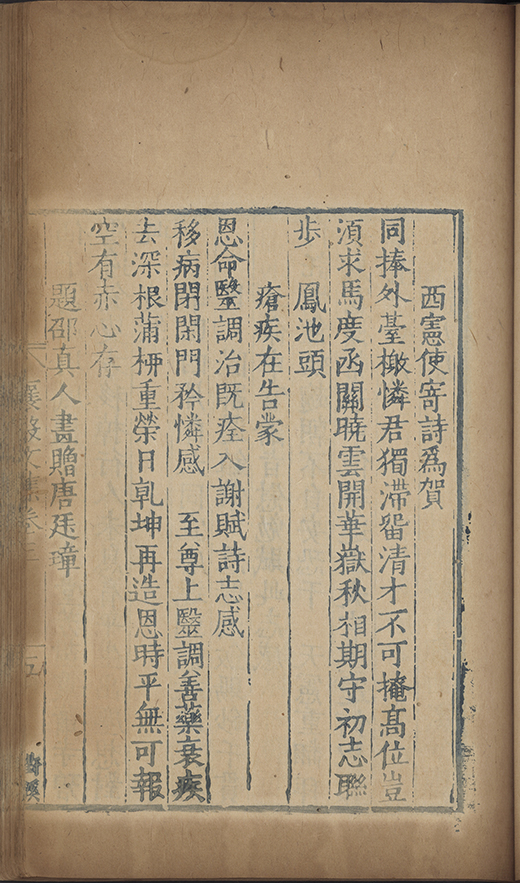 西憲使寄詩爲賀
同捧外臺檄憐君獨滯畱清才不可掩髙位豈
湏求馬度函關曉雲開華嶽秋相期守初志聯
步　鳳池頭
瘡疾在告蒙
恩命醫調治既痊入謝賦詩志感
移病閉閑門矜憐感　至尊上醫調善藥衰疾
去深根蒲栁重榮日乾坤再造恩時平無可報
空有赤心存
題邵真人畫贈唐廷璋
襄毅文集卷三
五